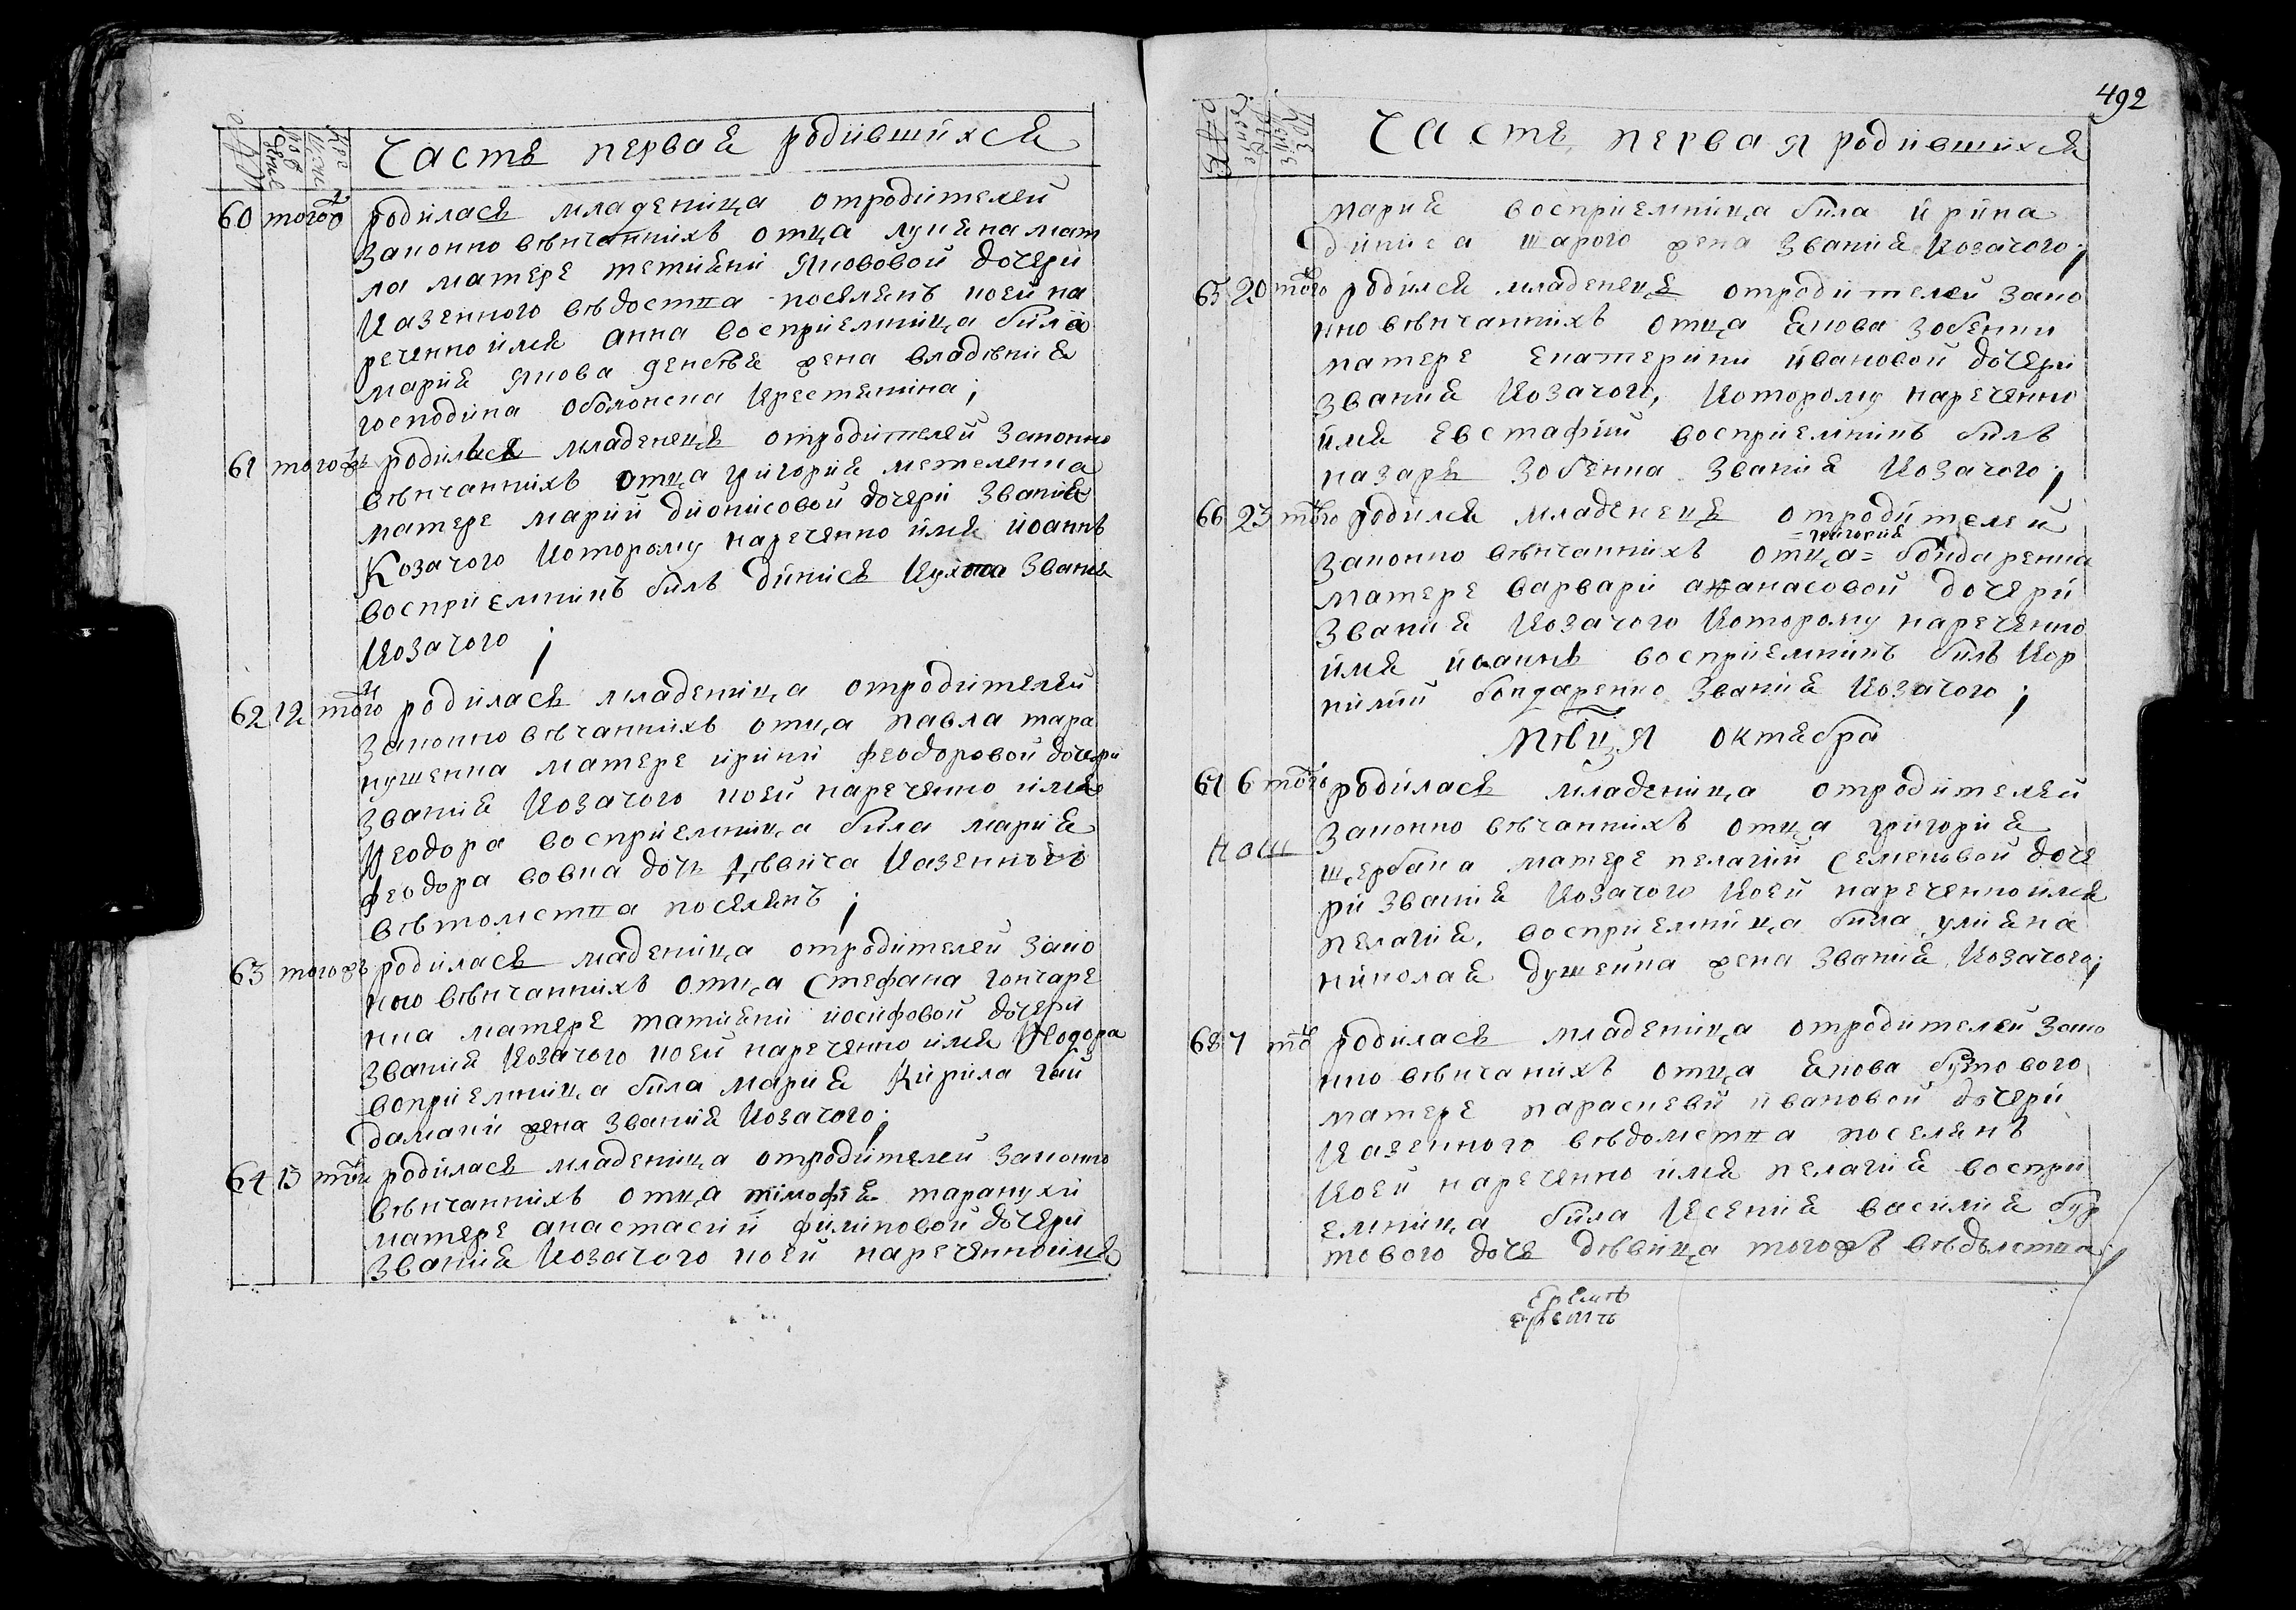 Часть первая родившихся
60 тогож родилась младеница отродителей
законно вѣнчанныхъ отца лукяна мат
ла матере тетияни Яковой дочери
Казенного вѣдоства поселянъ коей на
реченно имя анна восприемница била
мария Якова жена владѣния
господина оболонска крестянина;
61 тогожъ родился младенецъ отродителей законно
вѣнчаннихъ отца григория метеленка
матере марий дионисовой дочери звания
Козачого которому нареченно имя иоаннъ
восприемникъ билъ динисъ звания
козачого;
62 12 того родилась младеница отродителей
законно вѣнчаннихъ отца павла тара
нушенка матере ирини феодоровой дочери
звания козачого коей нареченно имя
феодора восприемница била мария
феодора вовка дочъ дѣвица казенного
вѣтомства поселянъ;
63 тогожъ родилась младеница отродителей зако
нно вѣнчаннихъ отца Стефана гончаре
нка матере татияни иосифовой дочери
звания козачого коей нареченно имя Феодора
воприемница била мария Кирила гай
дамаки жена звания козачого;
64 13 родилась младеница отродителей законно
вѣнчаннихъ отца тимофѣя таранухи
матере анастасий филиповой дочери
звания козачого коей нареченно имя
492
Часть первая родившихся
мария восприемница била ирина
диниса шарого жена звания козачого;
65 20 того родился младенецъ отродителей зако
нно вѣнчаннихъ отца якова зобенки
матере екатерини ивановой дочери
звания козачого, которому нареченно
имя евстафий восприемникъ билъ
назаръ зобенка звания козачого;
66 23 того родился младенецъ отродителей
григория
законно вѣнчаннихъ отца = бондаренка
матере варвари афанасовой дочери
звания козачого которому нареченно
имя иоаннъ восприемникъ билъ кор
нилий бондаренко звания козачого;
мѣсця октября
67 6 того родилась младеница отродителей
законно вѣнчаннихъ отца григория
щербака матере пелагий Семеновой доче
ри звания козачого коей нареченно имя
пелагия. восприемница била уляна
николая душейка жена звания козачого;
68 7 родилась младеница отродителей зако
нно вѣнчанихъ отца якова буртового
матере параскевий ивановой дочери
казенного вѣдомства поселянъ
коей нареченно имя пелагия воспри
емница била ксения василия бур
тового дочъ дѣвица тогожъ вѣдомства;